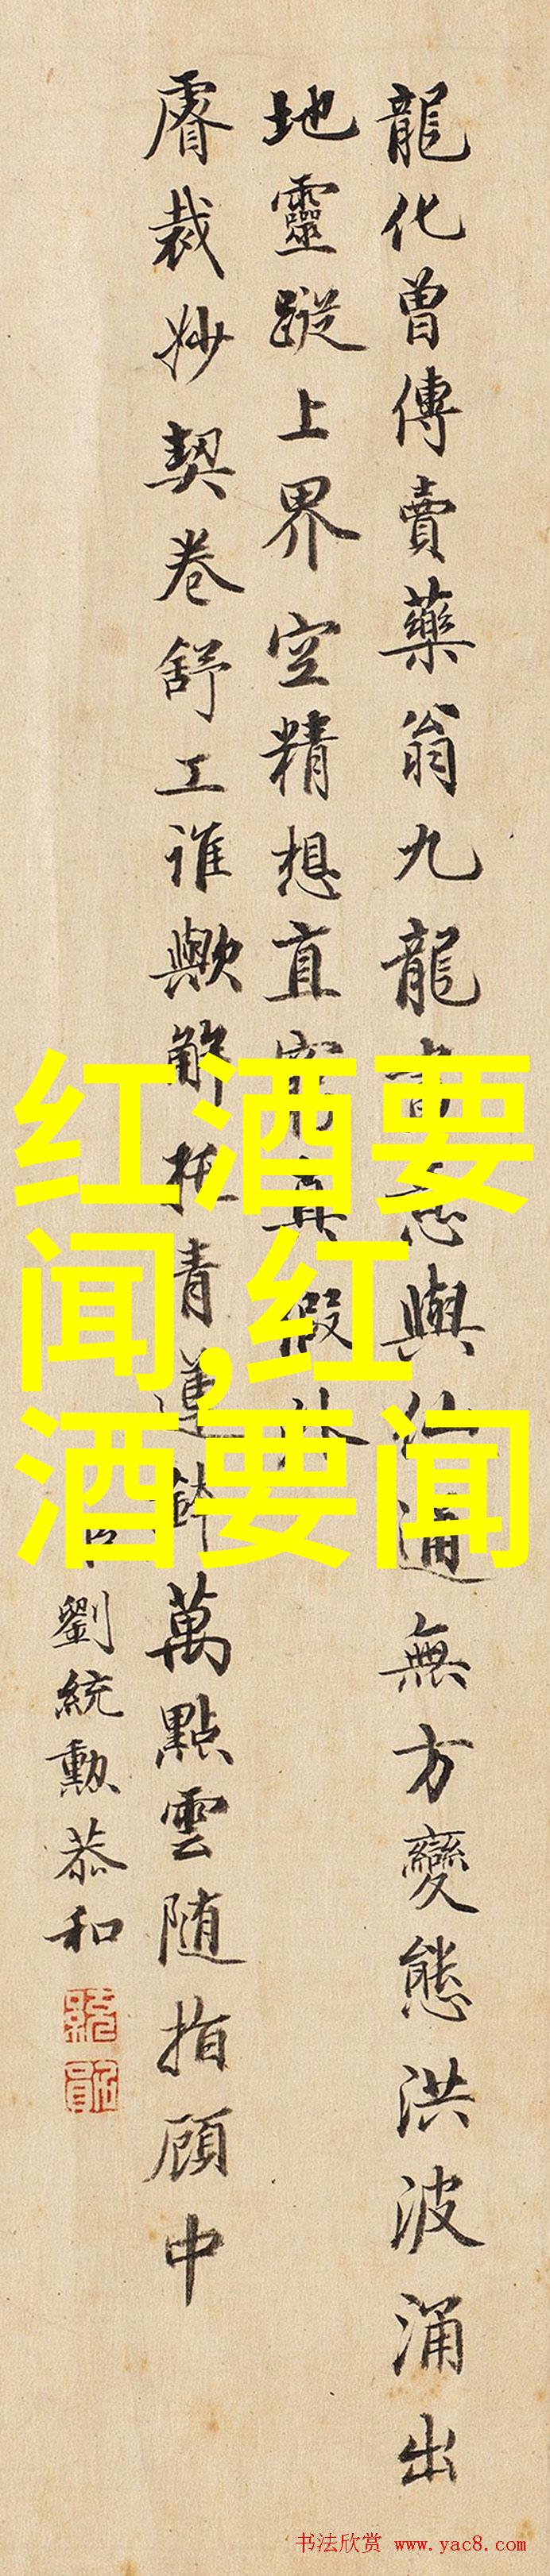 龍化曾傳賣藥翁九龍與通無方變態洪波涌出
地靈蹤上界空精想直窮真假外
睿裁妙契卷舒工誰歟解托青蓮鉢萬點雲隨指顧中
劉統勲恭和
红酒要
闻,红
酒要闻
书法欣赏 www.yac8.com